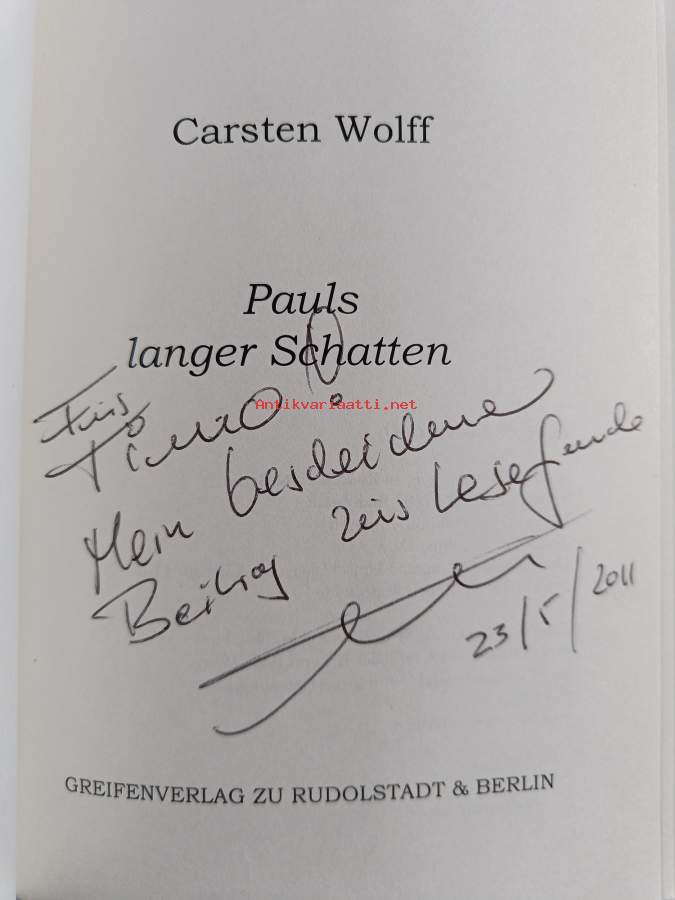 Carsten Wolff
Pauls
langer Schatten
Antikvariaatti.net
Für
Timo!
Mein bescheidener
Beitrag zur Lesefreude
23/5/2011
GREIFENVERLAG ZU RUDOLSTADT & BERLIN